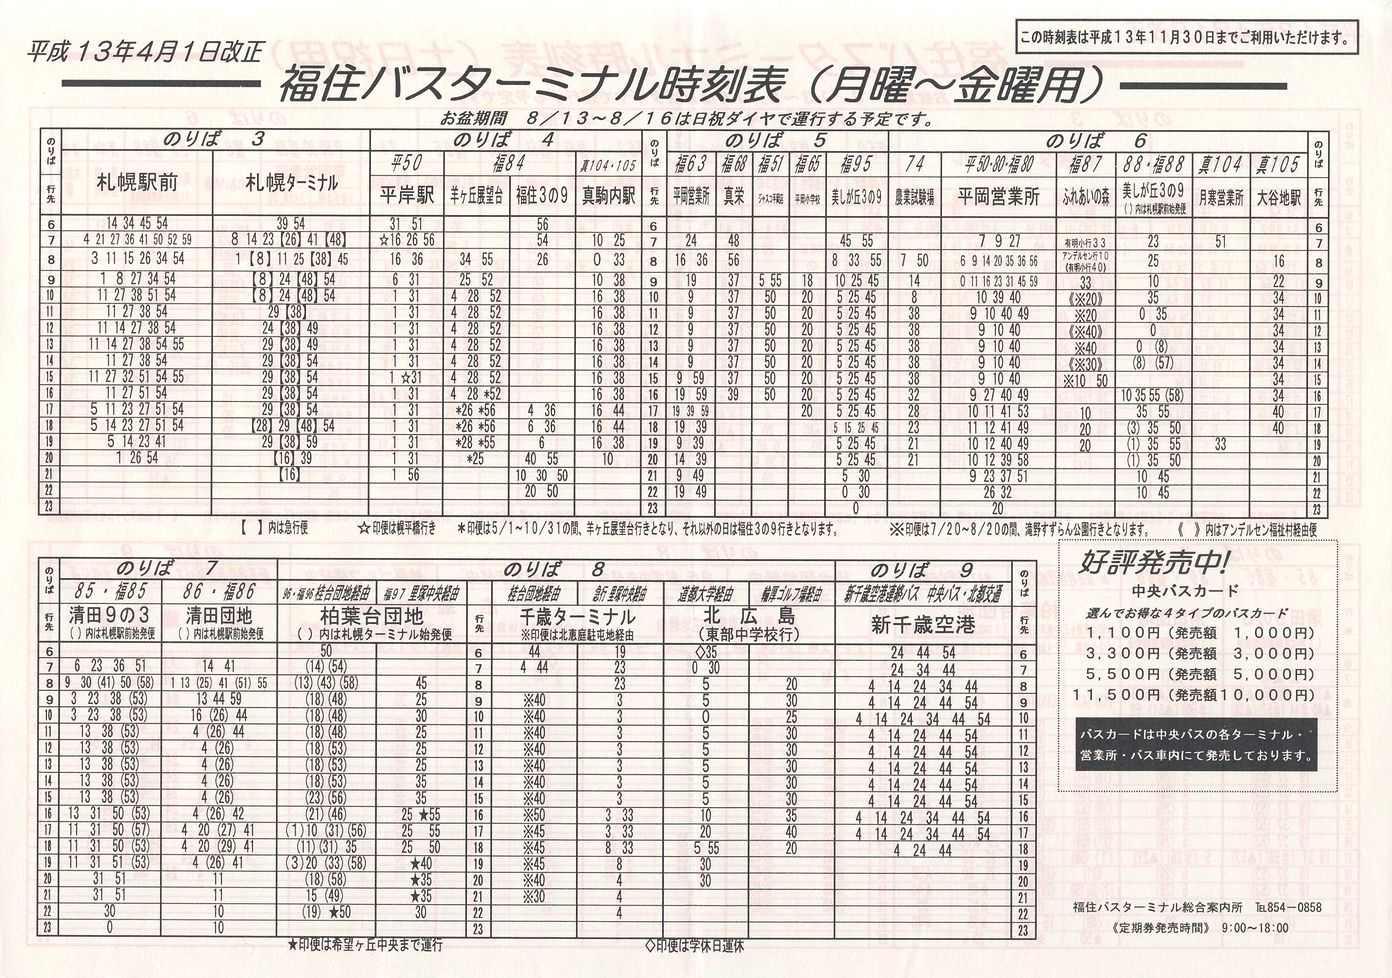 平成13年4月1日改正
この時刻表は平成13年11月30日までご利用いただけます。
福住バスターミナル時刻表（月曜～金曜用）
お盆期間　8／13～8／16は日祝ダイヤで運行する予定です。
のりば　のりば 3　のりば 4　のりば　のりば 5　のりば 6　のりば
平50　福84　真104・105　福63　福68　福51　福65　福95　74　平50・80・福80　福87　88・福88　真104　真105
行先　札幌駅前　札幌ターミナル　平岸駅　羊ヶ丘展望台　福住3の9　真駒内駅　行先　平岡営業所　真栄　平岡小学校　美しが丘3の9　農業試験場　平岡営業所　ふれあいの森　美しが丘3の9　月寒営業所　大谷地駅　行先
（ ）内は札幌駅前始発便
6　14 34 45 54　39 54　31 51　56　6　6
7　4 21 27 36 41 50 52 59　8 14 23【26】41【48】　☆16 26 56　54　10 25　7　24　48　45 55　7 9 27　有明小行33　23　51　7
8　3 11 15 26 34 54　1【8】11 25【38】45　16 36　34 55　26　0 33　8　16 36　56　8 33 55　7 50　6 9 14 20 35 36 56　アンデルセン行10　25　16　8
（有明小行40）
9　1 8 27 34 54　【8】24【48】54　6 31　25 52　10 38　9　19　37　5 55　18　10 25 45　14　0 11 16 23 31 45 59　33　10　22　9
10　11 27 38 51 54　【8】24【48】54　1 31　4 28 52　16 38　10　9　37　50　20　5 25 45　8　10 39 40　《※20》　35　34　10
11　11 27 38 54　29【38】　1 31　4 28 52　16 38　11　9　37　50　20　5 25 45　38　9 10 40 49　※20　0 35　34　11
12　11 14 27 38 54　24【38】49　1 31　4 28 52　16 38　12　9　37　50　20　5 25 45　38　9 10 40　《※40》　0　34　12
13　11 14 27 38 54 55　29【38】49　1 31　4 28 52　16 38　13　9　37　50　20　5 25 45　38　9 10 40　※40　0 (8)　34　13
14　11 27 38 54　29【38】54　1 31　4 28 52　16 38　14　9　37　50　20　5 25 45　38　9 10 40　《※30》　(8) (57)　34　14
15　11 27 32 51 54 55　29【38】54　1 ☆31　4 28 52　16 38　15　9 59　37　50　20　5 25 45　38　9 10 40　※10 50　34　15
16　11 27 51 54　29【38】54　1 31　4 28 *52　16 38　16　19 59　39　50　20　5 25 45　32　9 27 40 49　10 35 55 (58)　34　16
17　5 11 23 27 51 54　29【38】54　1 31　*26 *56　4 36　16 44　17　19 39 59　20　5 25 45　28　10 11 41 53　10　35 55　40　17
18　5 14 23 27 51 54　【28】29【48】54　1 31　*26 *56　6 36　16 44　18　19 39　5 15 25 45　23　11 12 41 49　20　(3) 35 50　40　18
19　5 14 23 41　29【38】59　1 31　*28 *55　6　16 38　19　9 39　5 25 45　21　10 12 40 49　20　(1) 35 55　33　19
20　1 26 54　【16】39　1 31　*25　40 55　10　20　14 39　5 25 45　21　10 12 39 58　(1) 35 50　20
21　【16】　1 56　10 30 50　21　9 49　5 30　9 23 37 51　10 45　21
22　20 50　22　19 49　0 30　26 32　10 45　22
23　23　0　20　23
【 】内は急行便　☆印便は幌平橋行き　*印便は5/1～10/31の間、羊ヶ丘展望台行きとなり、それ以外の日は福住3の9行きとなります。　※印便は7/20～8/20の間、滝野すずらん公園行きとなります。　《 》内はアンデルセン福祉村経由便
のりば　のりば 7　のりば 8　のりば 9　のりば
85・福85　86・福86　96・福96 桂台団地経由　福97 里塚中央経由　桂台団地経由　急行 里塚中央経由　道都大学経由　輪厚ゴルフ場経由　新千歳空港連絡バス 中央バス・北都交通
行先　清田9の3　清田団地　柏葉台団地　行先　千歳ターミナル　北広島　新千歳空港　行先
（ ）内は札幌駅前始発便　（ ）内は札幌駅前始発便　（ ）内は札幌ターミナル始発便　※印便は北恵庭駐屯地経由　（東部中学校行）
6　50　6　44　19　◇35　24 44 54　6
7　6 23 36 51　14 41　(14) (54)　7　4 44　23　0 30　24 34 44　7
8　9 30 (41) 50 (58)　1 13 (25) 41 (51) 55　(13) (43) (58)　45　8　23　5　20　4 14 24 34 44　8
9　3 23 38 (53)　13 44 59　(18) (48)　25　9　※40　3　5　30　4 14 24 44 54　9
10　3 23 38 (53)　16 (26) 44　(18) (48)　30　10　※40　3　0　25　4 14 24 34 44 54　10
11　13 38 (53)　4 (26) 44　(18) (48)　25　11　※40　3　5　30　4 24 44 54　11
12　13 38 (53)　4 (26)　(18) (53)　25　12　※40　3　5　30　4 14 24 44 54　12
13　13 38 (53)　4 (26)　(18) (53)　25　13　※40　3　5　30　4 14 24 44 54　13
14　13 38 (53)　4 (26)　(18) (53)　35　14　※40　3　5　30　4 14 24 44 54　14
15　13 38 (53)　4 (26)　(23) (56)　35　15　※40　3　5　30　4 14 24 44 54　15
16　13 31 50 (53)　4 (26) 42　(21) (46)　25 ★55　16　※50　3 33　10　35　4 14 24 34 44 54　16
17　11 31 50 (57)　4 20 (27) 41　(1) 10 (31) (56)　25 55　17　※45　3 33　20　40　4 14 24 34 44 54　17
18　11 31 50 (53)　4 20 (29) 41　(11) (31) 35　25 50　18　※45　8 33　5 55　20　4 24 44　18
19　11 31 51 (53)　4 (26) 41　(3) 20 (33) (58)　★40　19　※45　8　30　19
20　31 51　11　(18) (58)　★35　20　※40　4　30　20
21　31 51　11　15 (49)　★35　21　※30　4　21
22　30　10　(19) ★50　30　22　4　22
23　0　10　23　23
★印便は希望ヶ丘中央まで運行　◇印便は学休日運休
好評発売中!
中央バスカード
選んでお得な4タイプのバスカード
1,100円（発売額 1,000円）
3,300円（発売額 3,000円）
5,500円（発売額 5,000円）
11,500円（発売額10,000円）
バスカードは中央バスの各ターミナル・
営業所・バス車内にて発売しております。
福住バスターミナル総合案内所　℡854－0858
《定期券発売時間》 9:00～18:00